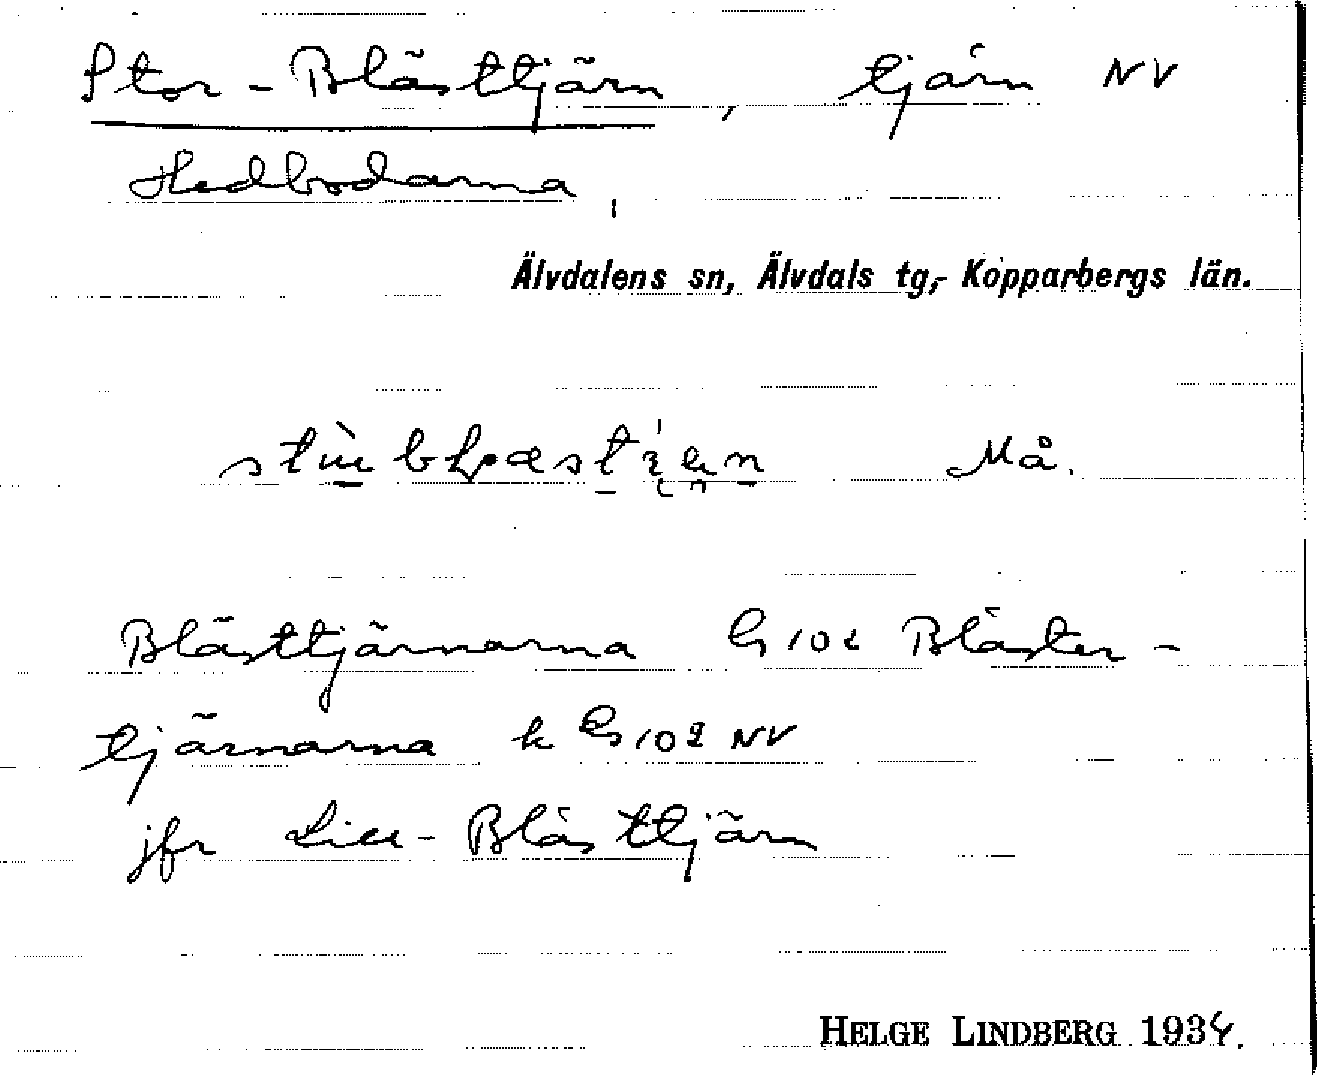 Stor-Blästtjärn, tjärn NV
Hedbodarna,
Älvdalens sn, Älvdals tg, Kopparbergs län.
Må.
Blästtjärnarna G 102 Bläster-
tjärnarna k G 102 NV
jfr Lill-Blästtjärn
HELGE LINDBERG 1934.